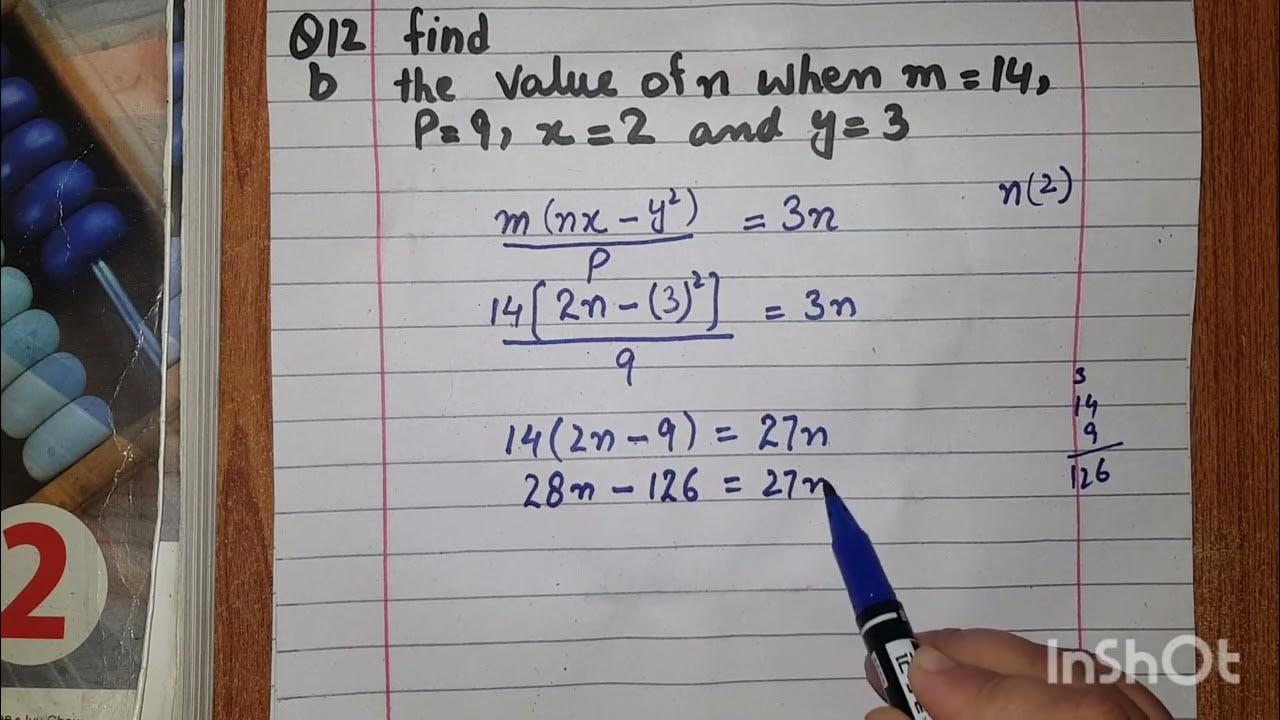 Q12 find
b the value of n when m = 14,
P = 9, x = 2 and y = 3
n(2)
m(nx - y²) = 3n
P
14[2n - (3)²] = 3n
9
14(2n - 9) = 27n
28n - 126 = 27n
3
14
9
126
2
InShOt